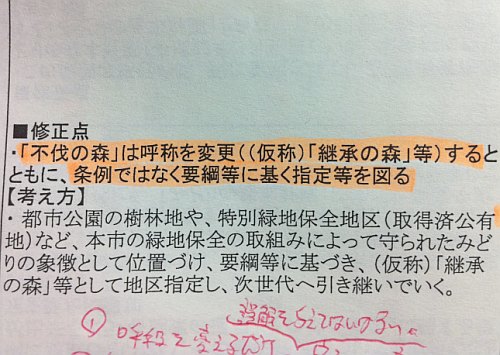 ■修正点
・「不伐の森」は呼称を変更((仮称)「継承の森」等)すると
ともに、条例ではなく要綱等に基く指定等を図る
【考え方】
・都市公園の樹林地や、特別緑地保全地区(取得済公有
地)など、本市の緑地保全の取組みによって守られたみど
りの象徴として位置づけ、要綱等に基づき、(仮称)「継承
の森」等として地区指定し、次世代へ引き継いでいく。
①呼称を変えるだけ